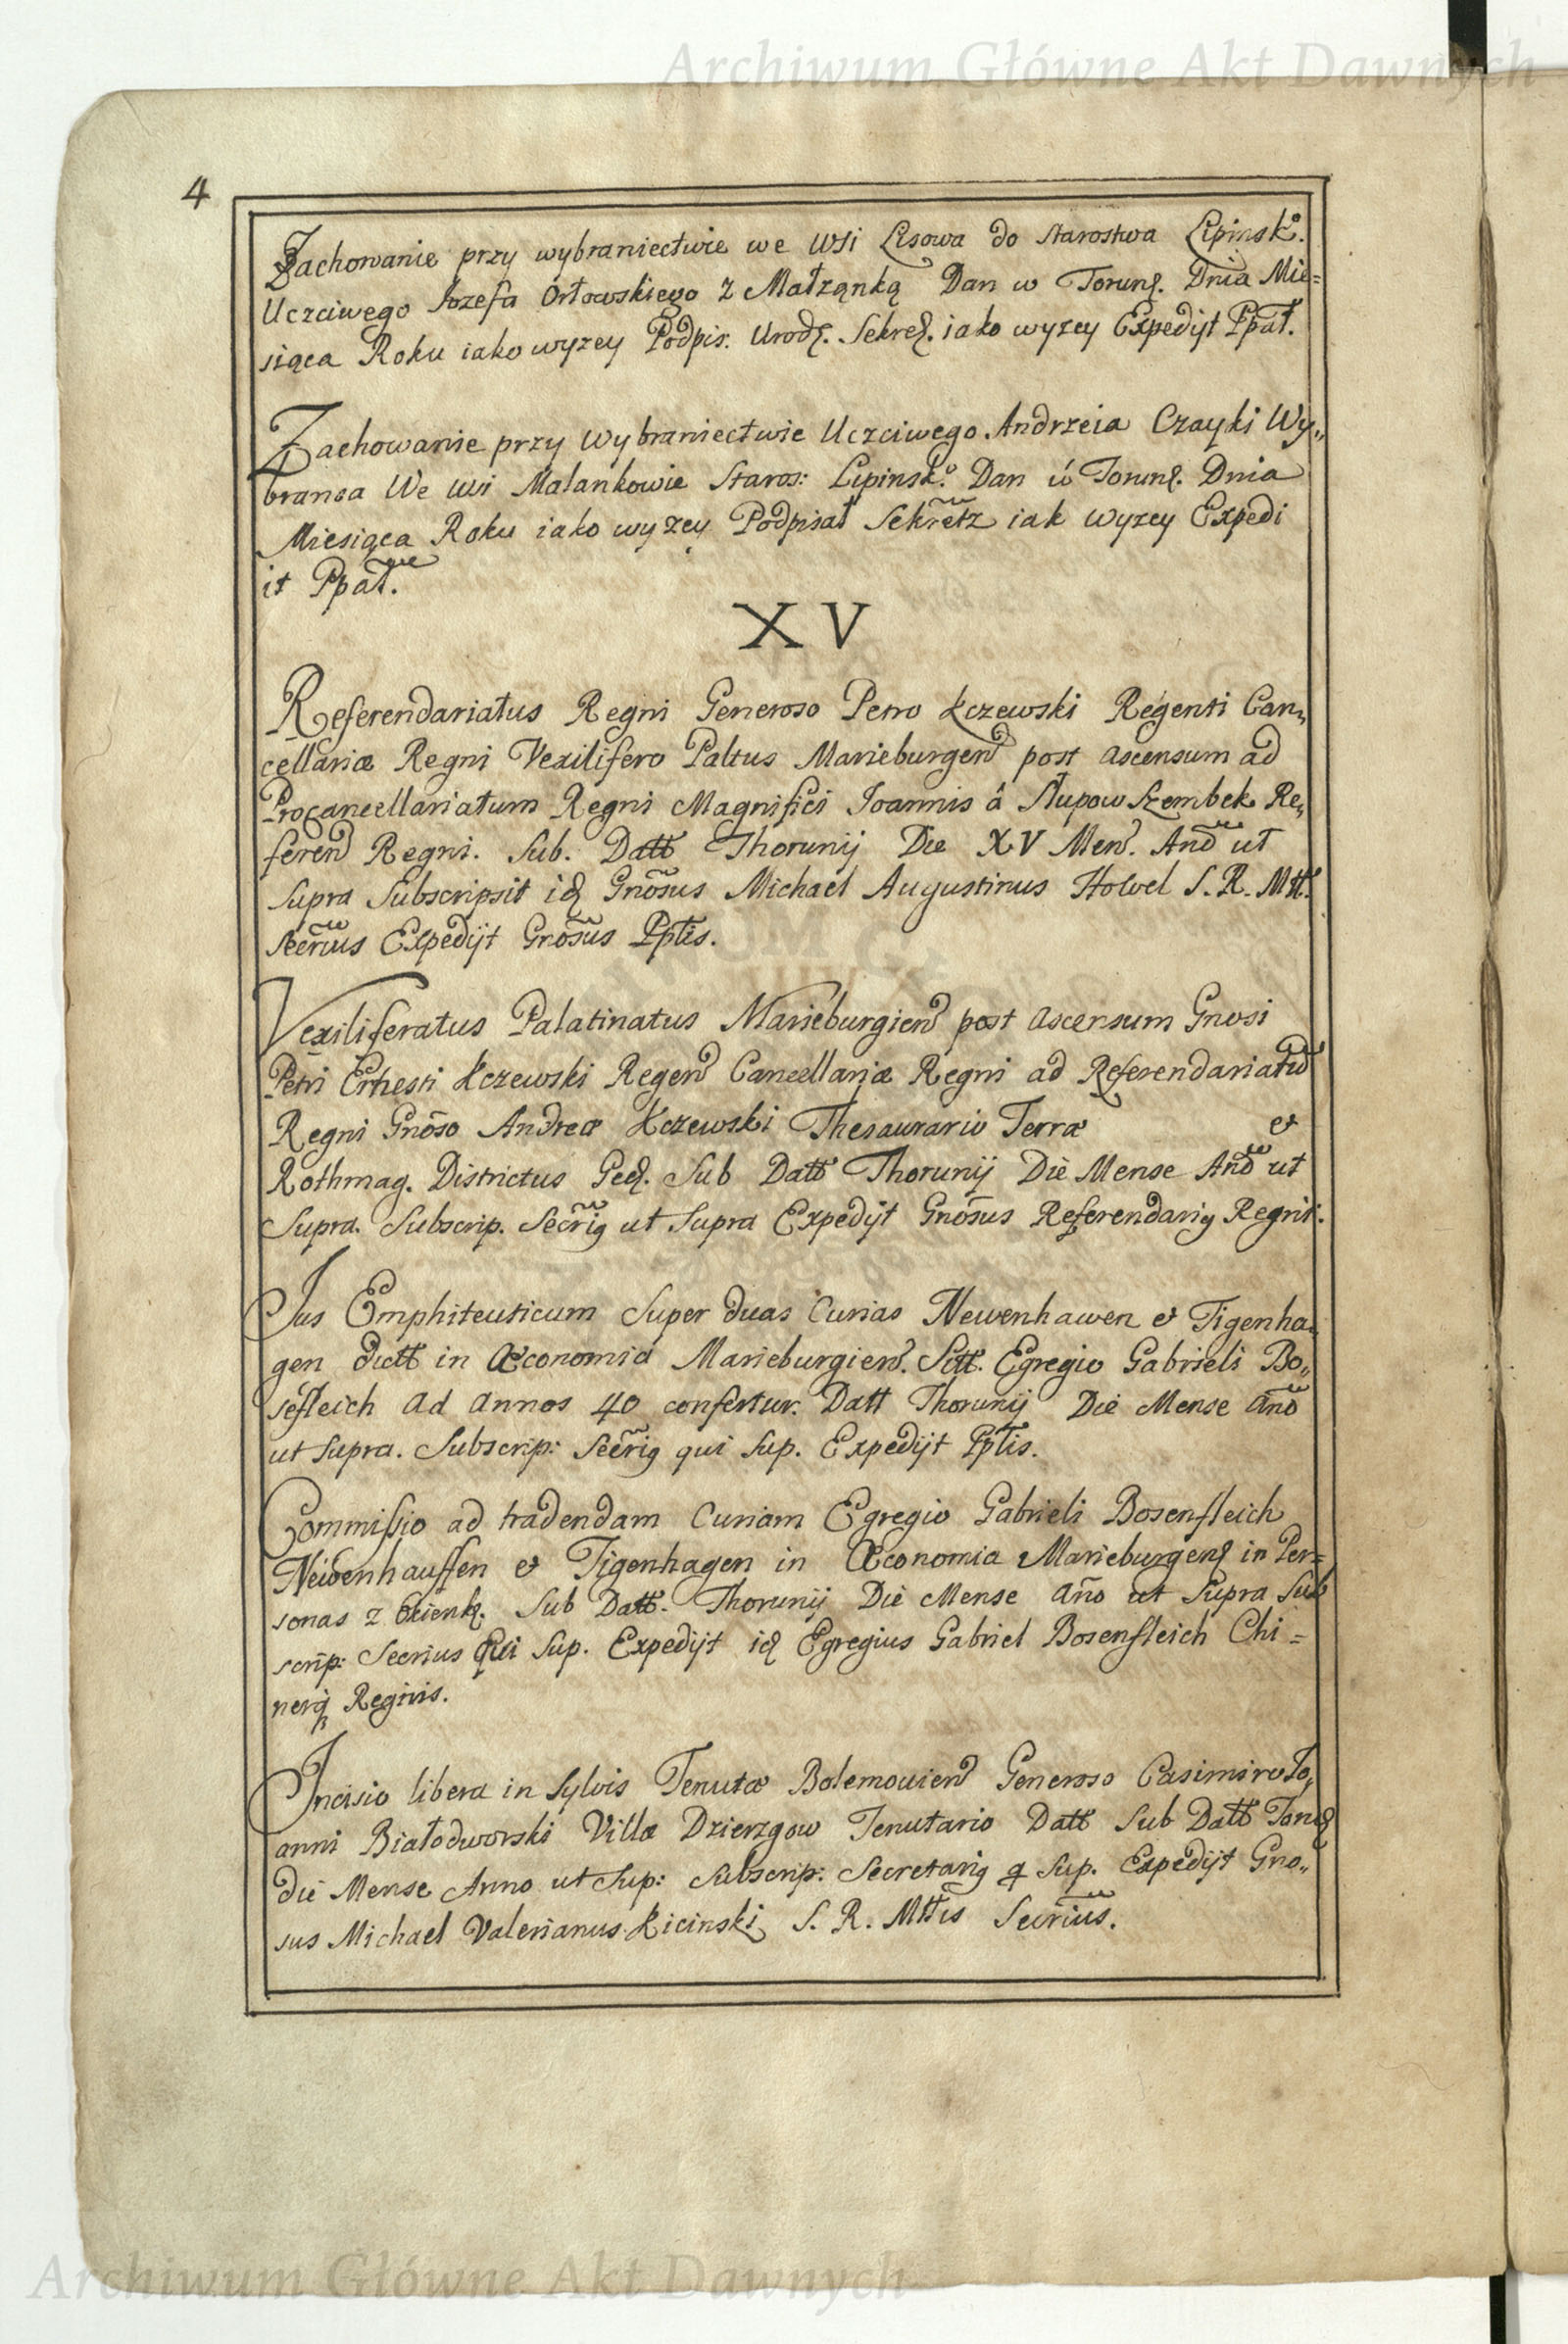 Archiwum Główne Akt Dawnych
4
Zachowanie przy wybraniectwie we Wsi Lisowa do Starostwa Lipinsk.
Uczciwego Iozefa Orłowskiego z Małząnką Dan w Torunę. Dnia Mie=
siąca Roku iako wyzey Podpis. Urodz. Sekret. iako wyzey Expedijt Ppat.
Zachowanie przy Wybraniectwie Uczciwego Andrzeia Czayki Wy„
branca We wsi Malankowie Staros: Lipinsk. Dan w Torunę. Dnia
Miesiąca Roku iako wyzey Podpisał Sekretz iak Wyzey Expedi
it Ppat.
XV
Referendariatus Regni Generoso Petro Kczewski Regenti Can„
cellariæ Regni Vexilifero Paltus Marieburgen post ascensum ad
Procancellariatum Regni Magnifici Ioannis â Słupow Szembek Re„
feren Regni. Sub. Datt Thorunij Die XV Men. And ut
Supra Subscripsit idę Gnōsus Michael Augustinus Holvel S. R. Mtt.
Secrius Expedijt Gnosus Pptis.
Vexiliferatus Palatinatus Marieburgien post ascensum Gnosi
Petri Ernesti Kczewski Regen Cancellariæ Regni ad Referendariatu
Regni Gnōso Andreæ Kczewski Thesaurario Terræ et
Rothmag. Districtus Ged. Sub Datt Thorunij Die Mense And ut
Supra. Subscrip. Secrig ut Supra Expedijt Gnōsus Referendarig Regni.
Jus Emphiteuticum Super duas Curias Newenhawen et Tigenha„
gen dictt in Œconomia Marieburgien. Sitt. Egregio Gabrieli Bo„
sefleich ad annos 40 confertur. Datt Thorunij Die Mense año
ut Supra. Subscrip: Secrig qui Sup. Expedijt Pptis.
Commissio ad tradendam Curiam Egregio Gabrieli Bosenfleich
Neidenhauffen et Tigenhagen in Œconomia Marieburgenę in Per=
sonas z Okienk. Sub Datt. Thorunij Die Mense año ut Supra Sub
scrip: Secrius Qui Sup. Expedijt idę Egregius Gabriel Bosenfleich Chi=
nerq Reginis.
Incisio libera in Sylvis Tenutæ Bolemouien Generoso Casimiro Io„
anni Białodworski Villæ Dzierzgow Tenutario Datt Sub Datt Torunę
die Mense Anno ut Sup: Subscrip: Secretarig q Sup. Expedijt Gno„
sus Michael Valerianus Kicinski S. R. Mttis Secrius.
Archiwum Główne Akt Dawnych